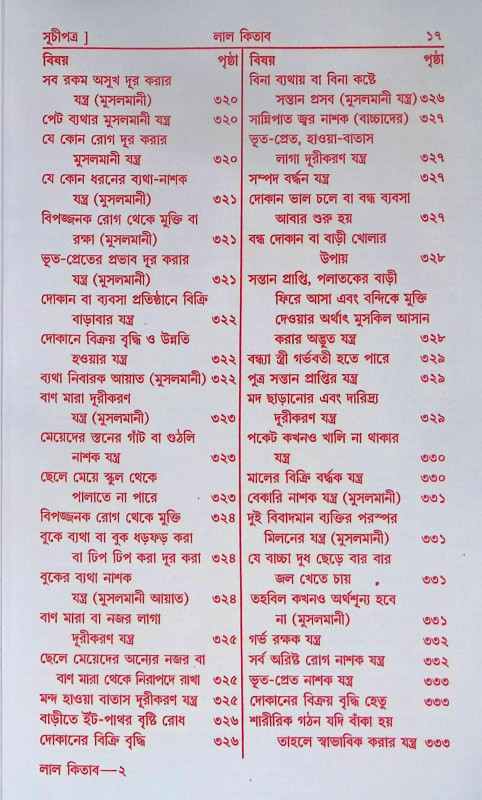 সূচীপত্র ] লাল কিতাব ১৭
বিষয় পৃষ্ঠা
সব রকম অসুখ দূর করার
যন্ত্র (মুসলমানী) ৩২০
পেট ব্যথার মুসলমানী যন্ত্র ৩২০
যে কোন রোগ দূর করার
মুসলমানী যন্ত্র ৩২০
যে কোন ধরনের ব্যথা-নাশক
যন্ত্র (মুসলমানী) ৩২১
বিপজ্জনক রোগ থেকে মুক্তি বা
রক্ষা (মুসলমানী) ৩২১
ভূত-প্রেতের প্রভাব দূর করার
যন্ত্র (মুসলমানী) ৩২১
দোকান বা ব্যবসা প্রতিষ্ঠানে বিক্রি
বাড়াবার যন্ত্র ৩২২
দোকানে বিক্রয় বৃদ্ধি ও উন্নতি
হওয়ার যন্ত্র ৩২২
ব্যথা নিবারক আয়াত (মুসলমানী) ৩২২
বাণ মারা দূরীকরণ
যন্ত্র (মুসলমানী) ৩২৩
মেয়েদের স্তনের গাঁট বা গুঠলি
নাশক যন্ত্র ৩২৩
ছেলে মেয়ে স্কুল থেকে
পালাতে না পারে ৩২৩
বিপজ্জনক রোগ থেকে মুক্তি ৩২৪
বুকে ব্যথা বা বুক ধড়ফড় করা
বা ঢিপ ঢিপ করা দূর করা ৩২৪
বুকের ব্যথা নাশক
যন্ত্র (মুসলমানী আয়াত) ৩২৪
বাণ মারা বা নজর লাগা
দূরীকরণ যন্ত্র ৩২৫
ছেলে মেয়েদের অন্যের নজর বা
বাণ মারা থেকে নিরাপদে রাখা ৩২৫
মন্দ হাওয়া বাতাস দূরীকরণ যন্ত্র ৩২৫
বাড়ীতে ইঁট-পাথর বৃষ্টি রোধ ৩২৬
দোকানের বিক্রি বৃদ্ধি ৩২৬
লাল কিতাব—২
বিষয় পৃষ্ঠা
বিনা ব্যথায় বা বিনা কষ্টে
সন্তান প্রসব (মুসলমানী যন্ত্র) ৩২৬
সান্নিপাত জ্বর নাশক (বাচ্চাদের) ৩২৭
ভূত-প্রেত, হাওয়া-বাতাস
লাগা দূরীকরণ যন্ত্র ৩২৭
সম্পদ বর্দ্ধন যন্ত্র ৩২৭
দোকান ভাল চলে বা বন্ধ ব্যবসা
আবার শুরু হয় ৩২৭
বন্ধ দোকান বা বাড়ী খোলার
উপায় ৩২৮
সন্তান প্রাপ্তি, পলাতকের বাড়ী
ফিরে আসা এবং বন্দিকে মুক্তি
দেওয়ার অর্থাৎ মুসকিল আসান
করার অদ্ভুত যন্ত্র ৩২৮
বন্ধ্যা স্ত্রী গর্ভবতী হতে পারে ৩২৯
পুত্র সন্তান প্রাপ্তির যন্ত্র ৩২৯
মদ ছাড়ানোর এবং দারিদ্র্য
দূরীকরণ যন্ত্র ৩২৯
পকেট কখনও খালি না থাকার
যন্ত্র ৩৩০
মালের বিক্রি বর্দ্ধক যন্ত্র ৩৩০
বেকারি নাশক যন্ত্র (মুসলমানী) ৩৩১
দুই বিবাদমান ব্যক্তির পরস্পর
মিলনের যন্ত্র (মুসলমানী) ৩৩১
যে বাচ্চা দুধ ছেড়ে বার বার
জল খেতে চায় ৩৩১
তহবিল কখনও অর্থশূন্য হবে
না (মুসলমানী) ৩৩১
গর্ভ রক্ষক যন্ত্র ৩৩২
সর্ব অরিষ্ট রোগ নাশক যন্ত্র ৩৩২
ভূত-প্রেত নাশক যন্ত্র ৩৩৩
দোকানের বিক্রয় বৃদ্ধি হেতু ৩৩৩
শারীরিক গঠন যদি বাঁকা হয়
তাহলে স্বাভাবিক করার যন্ত্র ৩৩৩